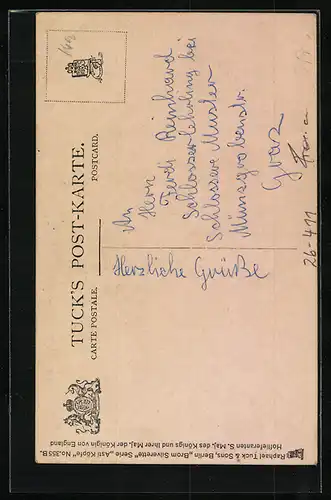 TUCK'S POST-KARTE.
CARTE POSTALE.
POSTCARD.
An
Herrn
Ferdi Reinhard
Schlosserlehrling bei
Schlosser Muster
Münzgrabenstr.
Graz
Herzliche Grüße
26-411
Raphael Tuck & Sons, Berlin „Brom Silverette" Serie „Asti Köpfe" No. 355 B.
Hoflieferanten S. Maj. des Königs und Ihrer Maj. der Königin von England